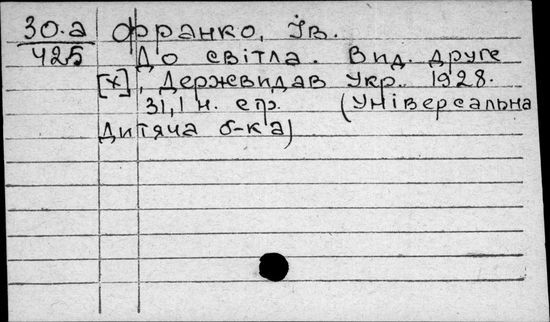 30.а Франко, Ів.
425 До світла. Вид. друге
[Х], Держвидав Укр. 1928.
31,1 н. стр. (Універсальна
Дитяча б-ка)